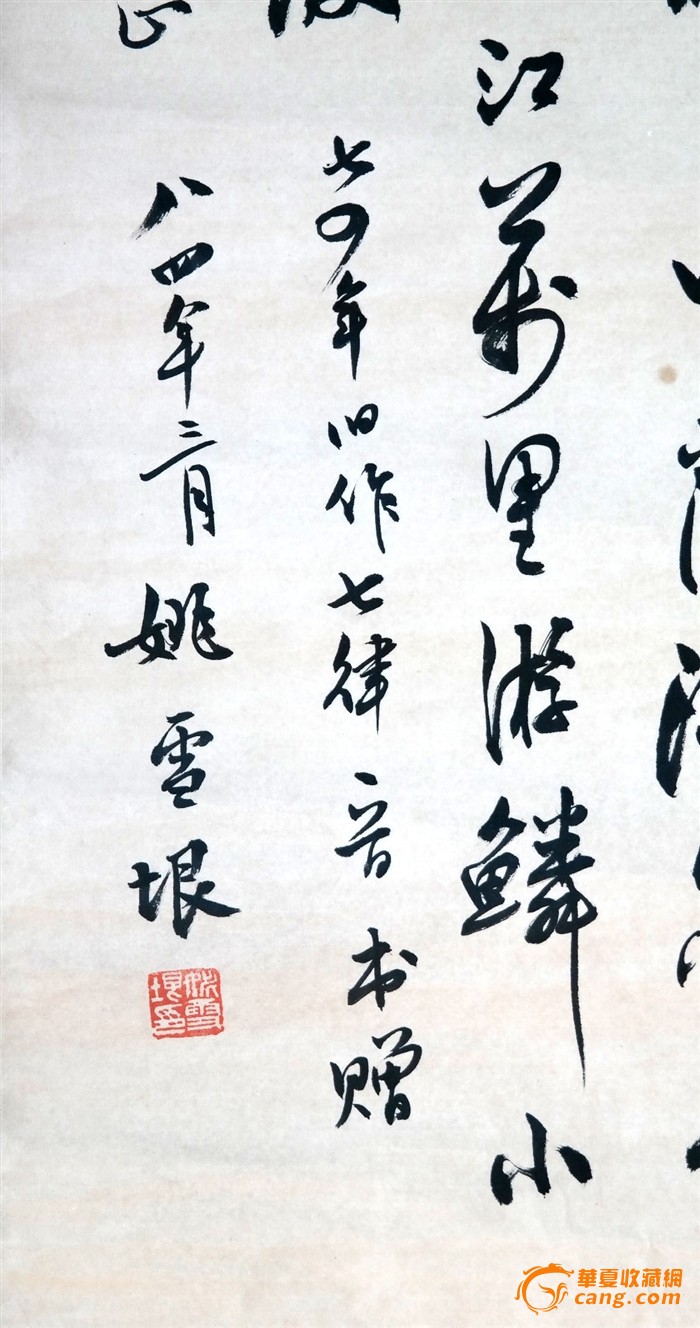 江萬里游鱗小
七四年旧作七律一首书赠
正
八四年三月姚雪垠
姚雪垠印
華夏收藏網
cang.com